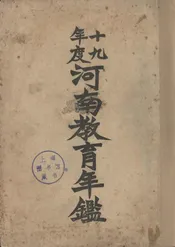 十九年度
河南教育年鑑